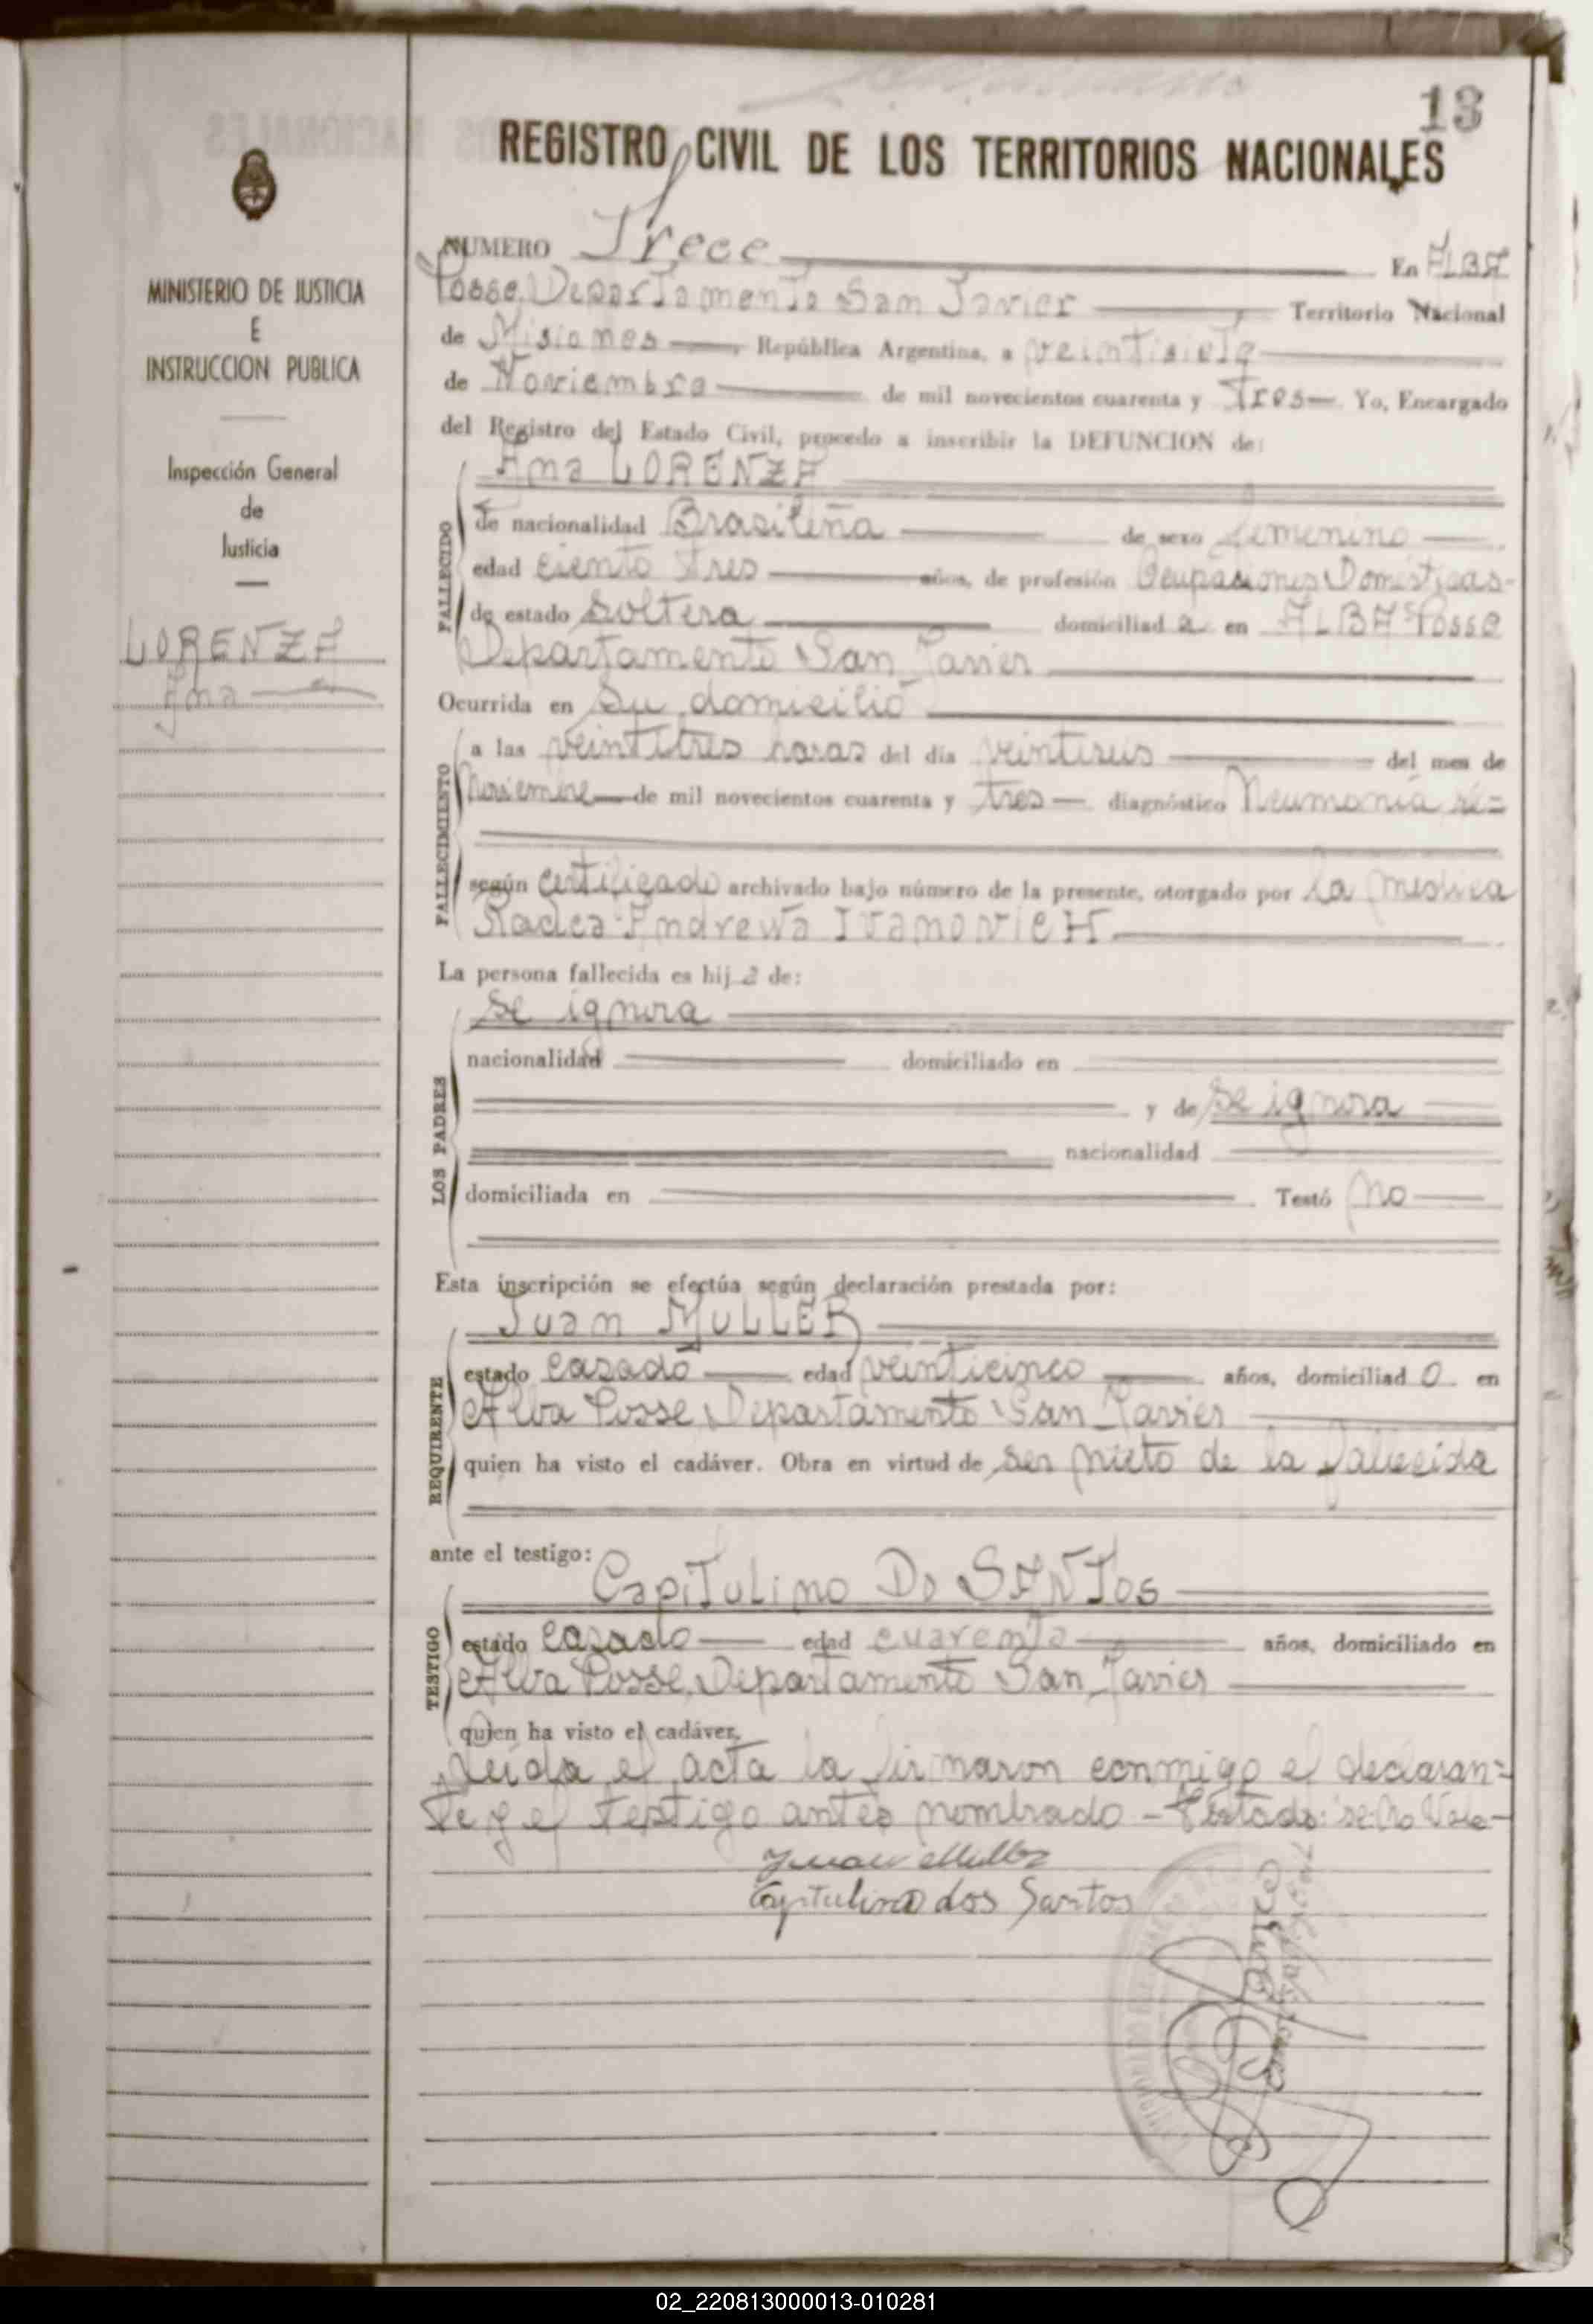 13
REGISTRO CIVIL DE LOS TERRITORIOS NACIONALES
MINISTERIO DE JUSTICIA
E
INSTRUCCION PUBLICA
Inspección General
de
Justicia
LORENZA
Ana
NUMERO Trece En ALBA
Posse, Departamento San Javier Territorio Nacional
de Misiones, República Argentina, a veintisiete
de Noviembre de mil novecientos cuarenta y Tres Yo, Encargado
del Registro del Estado Civil, procedo a inscribir la DEFUNCION de:
Ana LORENZA
FALLECIDO
de nacionalidad Brasileña de sexo femenino
edad ciento tres años, de profesión Ocupaciones Domésticas-
de estado soltera domiciliada en ALBA Posse
Departamento San Javier
Ocurrida en su domicilio
FALLECIMIENTO
a las veintitres horas del día veintiseis del mes de
Noviembre de mil novecientos cuarenta y tres diagnóstico Neumonía se=
según certificado archivado bajo número de la presente, otorgado por la médica
Radca Andrewa IVANOVICH
La persona fallecida es hija de:
LOS PADRES
se ignora
nacionalidad domiciliado en
y de se ignora
nacionalidad
domiciliada en Testó No
Esta inscripción se efectúa según declaración prestada por:
REQUIRENTE
Juan MULLER
estado casado edad veinticinco años, domiciliado en
Alba Posse, Departamento San Javier
quien ha visto el cadáver. Obra en virtud de ser nieto de la fallecida
ante el testigo:
TESTIGO
CapiTuLino Do SANTos
estado casado edad cuarenta años, domiciliado en
Alba Posse, Departamento San Javier
quien ha visto el cadáver.
Leída el acta la firmaron conmigo el declaran=
te y el testigo antes nombrado - Testado: se: No Vale-
Juan Muller
Capitulino dos Santos
02_220813000013-010281